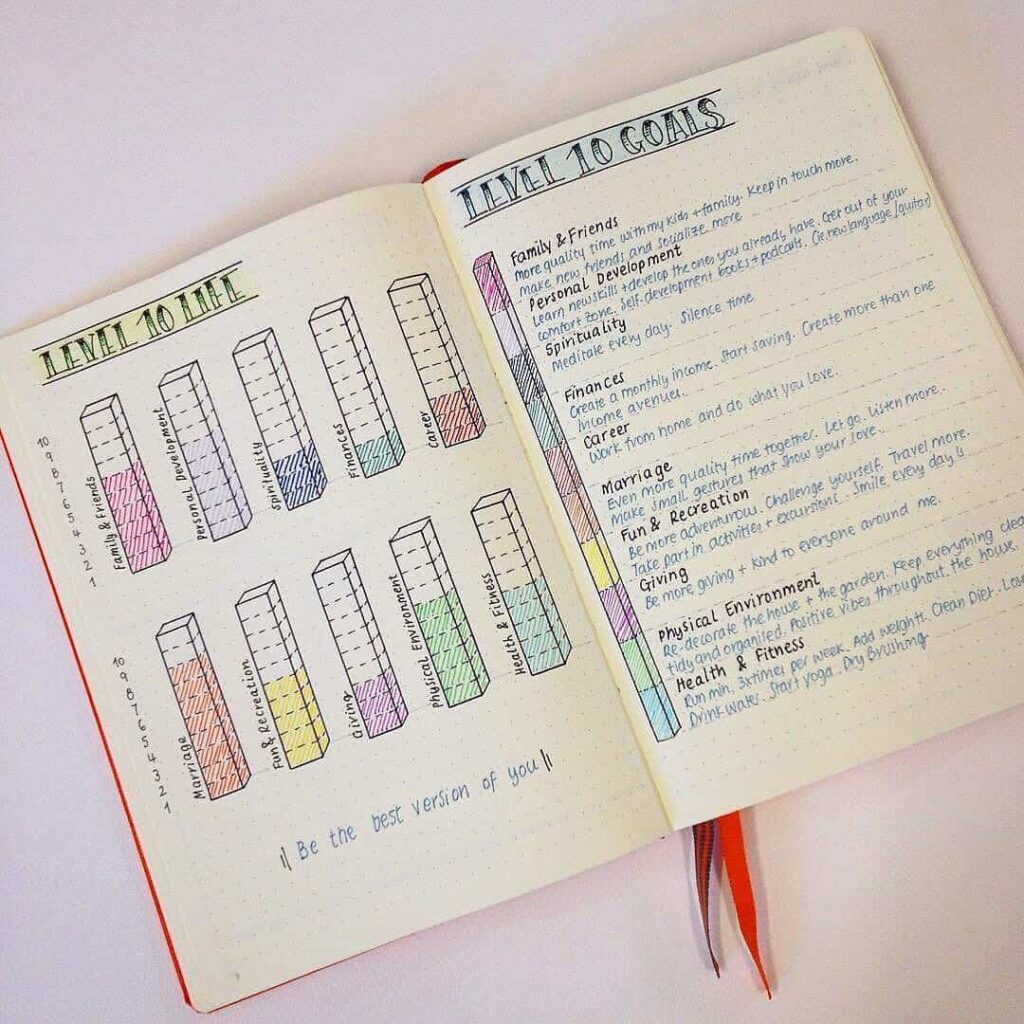 LEVEL 10 LIFE
10
9
8
7
6
5
4
3
2
1
Family & Friends
Personal Development
Spirituality
Finances
Career
10
9
8
7
6
5
4
3
2
1
Marriage
Fun & Recreation
Giving
Physical Environment
Health & Fitness
Be the best version of you
LEVEL 10 GOALS
Family & Friends
more quality time with my kids + family. Keep in touch more.
make new friends and socialize more
Personal Development
Learn new skills + develop the ones you already have. Get out of your
comfort zone. Self. development books + podcasts. (ie. new language/guitar)
Spirituality
Meditate every day. Silence time
Finances
Create a monthly income. Start saving. Create more than one
income avenues.
Career
Work from home and do what you love.
Marriage
Even more quality time together. Let go. Listen more.
Make small gestures that show your love.
Fun & Recreation
Be more adventurous. Challenge yourself. Travel more.
Take part in activities + excursions. Smile every day!!
Giving
Be more giving + kind to everyone around me.
Physical Environment
Re-decorate the house + the garden. Keep everything clea
tidy and organised. Positive vibes throughout the house.
Health & Fitness
Run min. 3x times per week. Add weights. Clean Diet.
Drink water. Start yoga. Dry Brushing